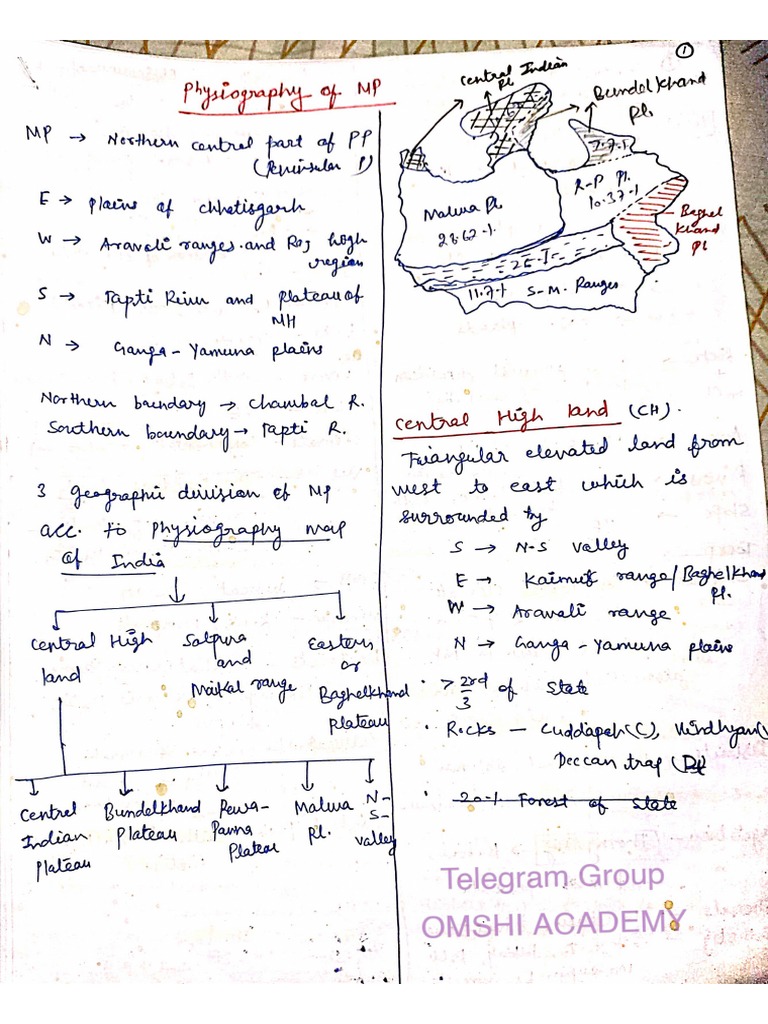 Physiography of MP
MP → Northern central part of PP
(Peninsular P)
E → plains of chhetisgarh
W → Aravali ranges and Raj high
region
S → Tapti River and plateau of
MH
N → Ganga-Yamuna plains
Northern boundary → Chambal R.
Southern boundary → Tapti R.
3 geographic division of MP
acc. to Physiography map
of India
Central High
land
Satpura
and
Maikal range
Eastern
or
Baghelkhand
plateau
Central
Indian
Plateau
Bundelkhand
Plateau
Rewa-
Panna
Plateau
Malwa
Pl.
N-
S-
valley
1
Central Indian
Pl
Bundelkhand
Pl.
7.7%
R-P Pl.
10.37%
Malwa Pl
28.62%
Baghel
Khand
Pl
11.7%
S-M. Ranges
Central High land (CH).
Triangular elevated land from
west to east which is
surrounded by
S → N-S valley
E → Kaimur range/Baghelkhand
Pl.
W → Aravali range
N → Ganga-Yamuna plains
• > 2rd/3 of State
• Rocks - Cuddapah(C), Vindhyan(V
Deccan trap
• 20% Forest of State
Telegram Group
OMSHI ACADEMY